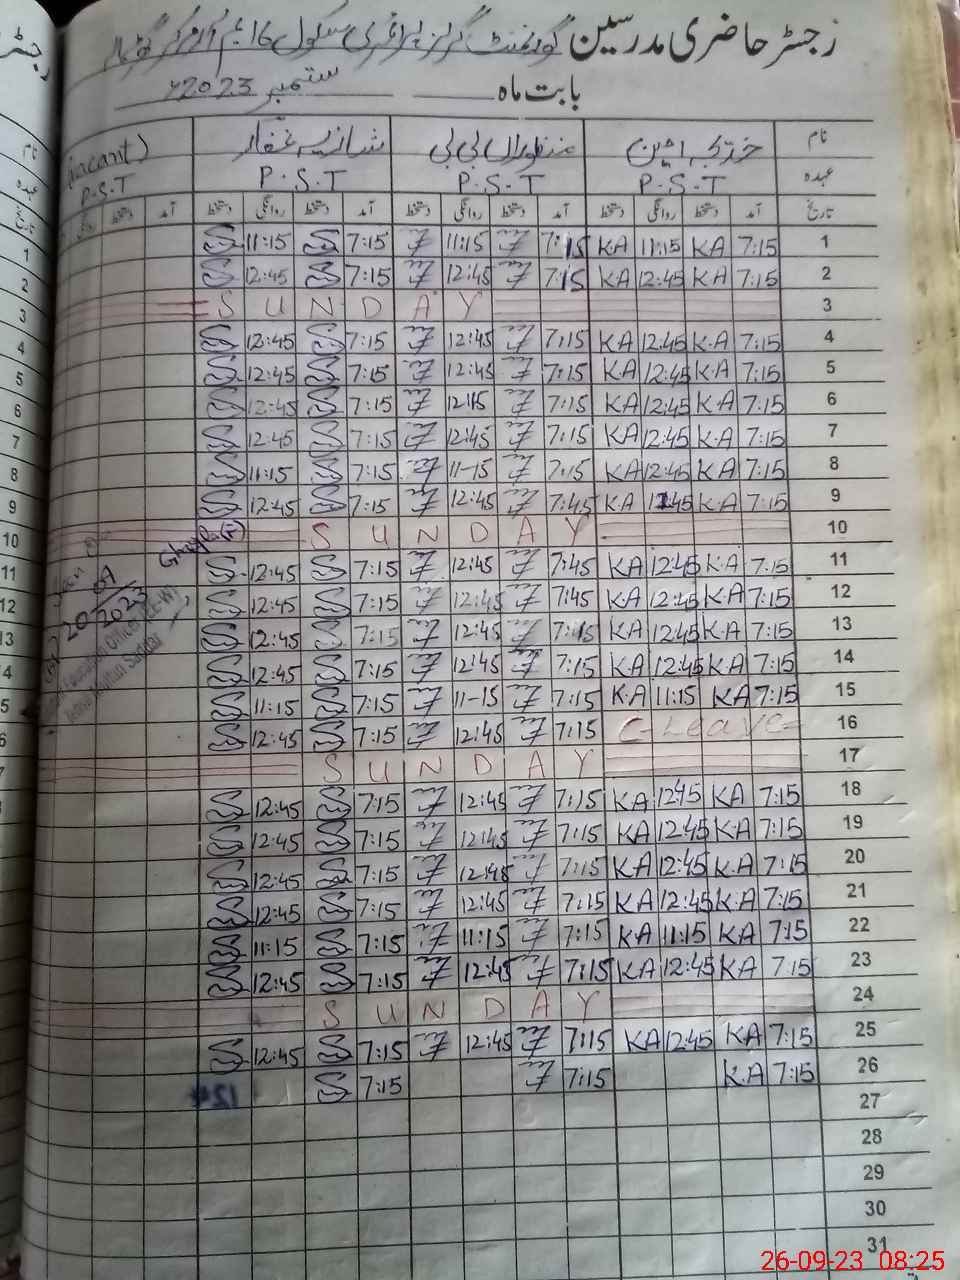 رجسٹر حاضری مدرسین گورنمنٹ گرلز پرائمری سکول
بابت ماہ ستمبر 2023ء
نام خدیجہ امین منظوراں بی بی شازیہ غفار (vacant)
عہدہ P.S.T P.S.T P.S.T P.S.T
تاریخ آمد دستخط روانگی دستخط آمد دستخط روانگی دستخط آمد دستخط روانگی دستخط آمد دستخط
1 7:15 KA 11:15 KA 7:15 11:15 7:15 11:15
2 7:15 KA 12:45 KA 7:15 12:45 7:15 12:45
3 SUNDAY
4 7:15 K.A 12:45 KA 7:15 12:45 7:15 12:45
5 7:15 K.A 12:45 K.A 7:15 12:45 7:15 12:45
6 7:15 K.A 12:45 KA 7:15 12:45 7:15 12:45
7 7:15 K.A 12:45 KA 7:15 12:45 7:15 12:45
8 7:15 K.A 12:45 KA 7:15 11-15 7:15 11:15
9 7:15 K.A 12:45 KA 7:45 12:45 7:15 12:45
10 SUNDAY
11 7:15 K.A 12:45 KA 7:45 12:45 7:15 12:45
12 7:15 K.A 12:45 K.A 7:45 12:45 7:15 12:45
13 7:15 K.A 12:45 KA 7:15 12:45 7:15 12:45
14 7:15 K.A 12:45 KA 7:15 12:45 7:15 12:45
15 7:15 KA 11:15 K.A 7:15 11-15 7:15 11:15
16 C-Leave 7:15 12:45 7:15 12:45
17 SUNDAY
18 7:15 KA 12:45 KA 7:15 12:45 7:15 12:45
19 7:15 K.A 12:45 KA 7:15 12:45 7:15 12:45
20 7:15 K.A 12:45 KA 7:15 12:45 7:15 12:45
21 7:15 K.A 12:45 KA 7:15 12:45 7:15 12:45
22 7:15 KA 11:15 KA 7:15 11:15 7:15 11:15
23 7:15 KA 12:45 KA 7:15 12:45 7:15 12:45
24 SUNDAY
25 7:15 KA 12:45 KA 7:15 12:45 7:15 12:45
26 7:15 K.A 7:15 7:15
27
28
29
30
31
20 09 2023
Education Officer
26-09-23 08:25